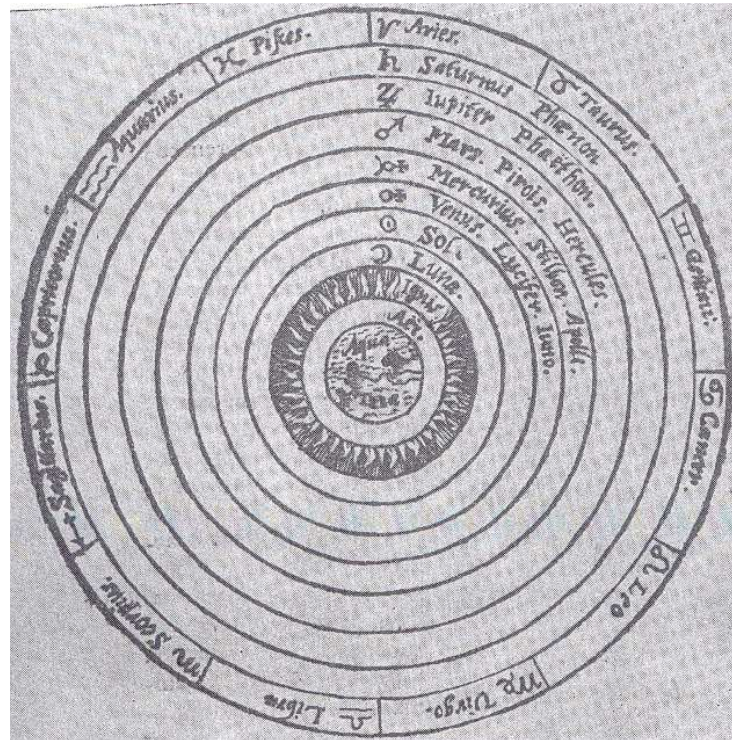 ♈ Aries.
♉ Taurus.
♊ Gemini.
♋ Cancer.
♌ Leo
♍ Virgo.
♎ Libra
♏ Scorpius.
♐ Sagittarius.
♑ Capricornus.
♒ Aquarius.
♓ Pisces.
♄ Saturnus Phænon
♃ Iupiter Phaëthon.
♂ Mars. Pirois. Hercules.
☿ Mercurius. Stilbon. Apollo.
♀ Venus. Lucifer. Iuno.
☉ Sol.
☾ Luna.
Ignis
Aër.
Aqua
Terra